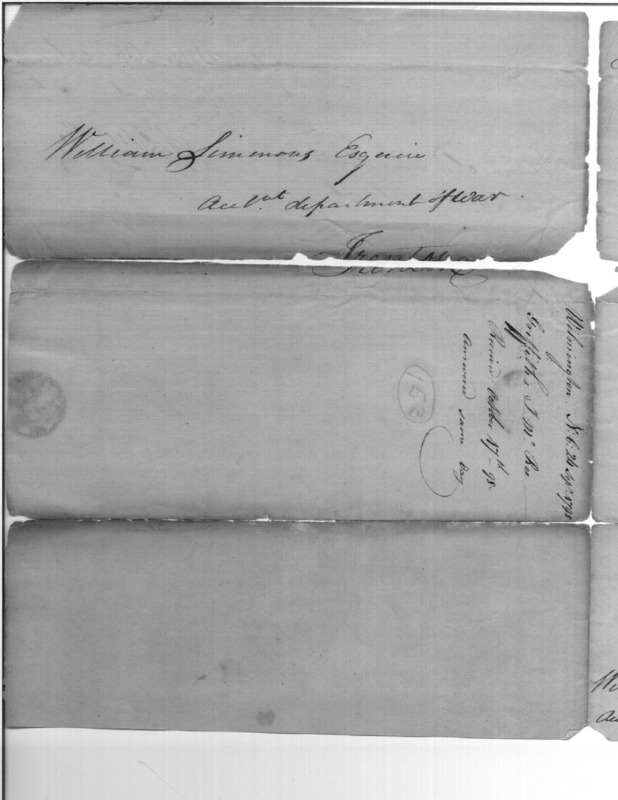 William Simmons Esquire
Accot. department of War.
Trenton
Wilmington N.C. 24 Sept. 1798
Griffith J. McRee
Received October 17th - 98.
Answered same day
153